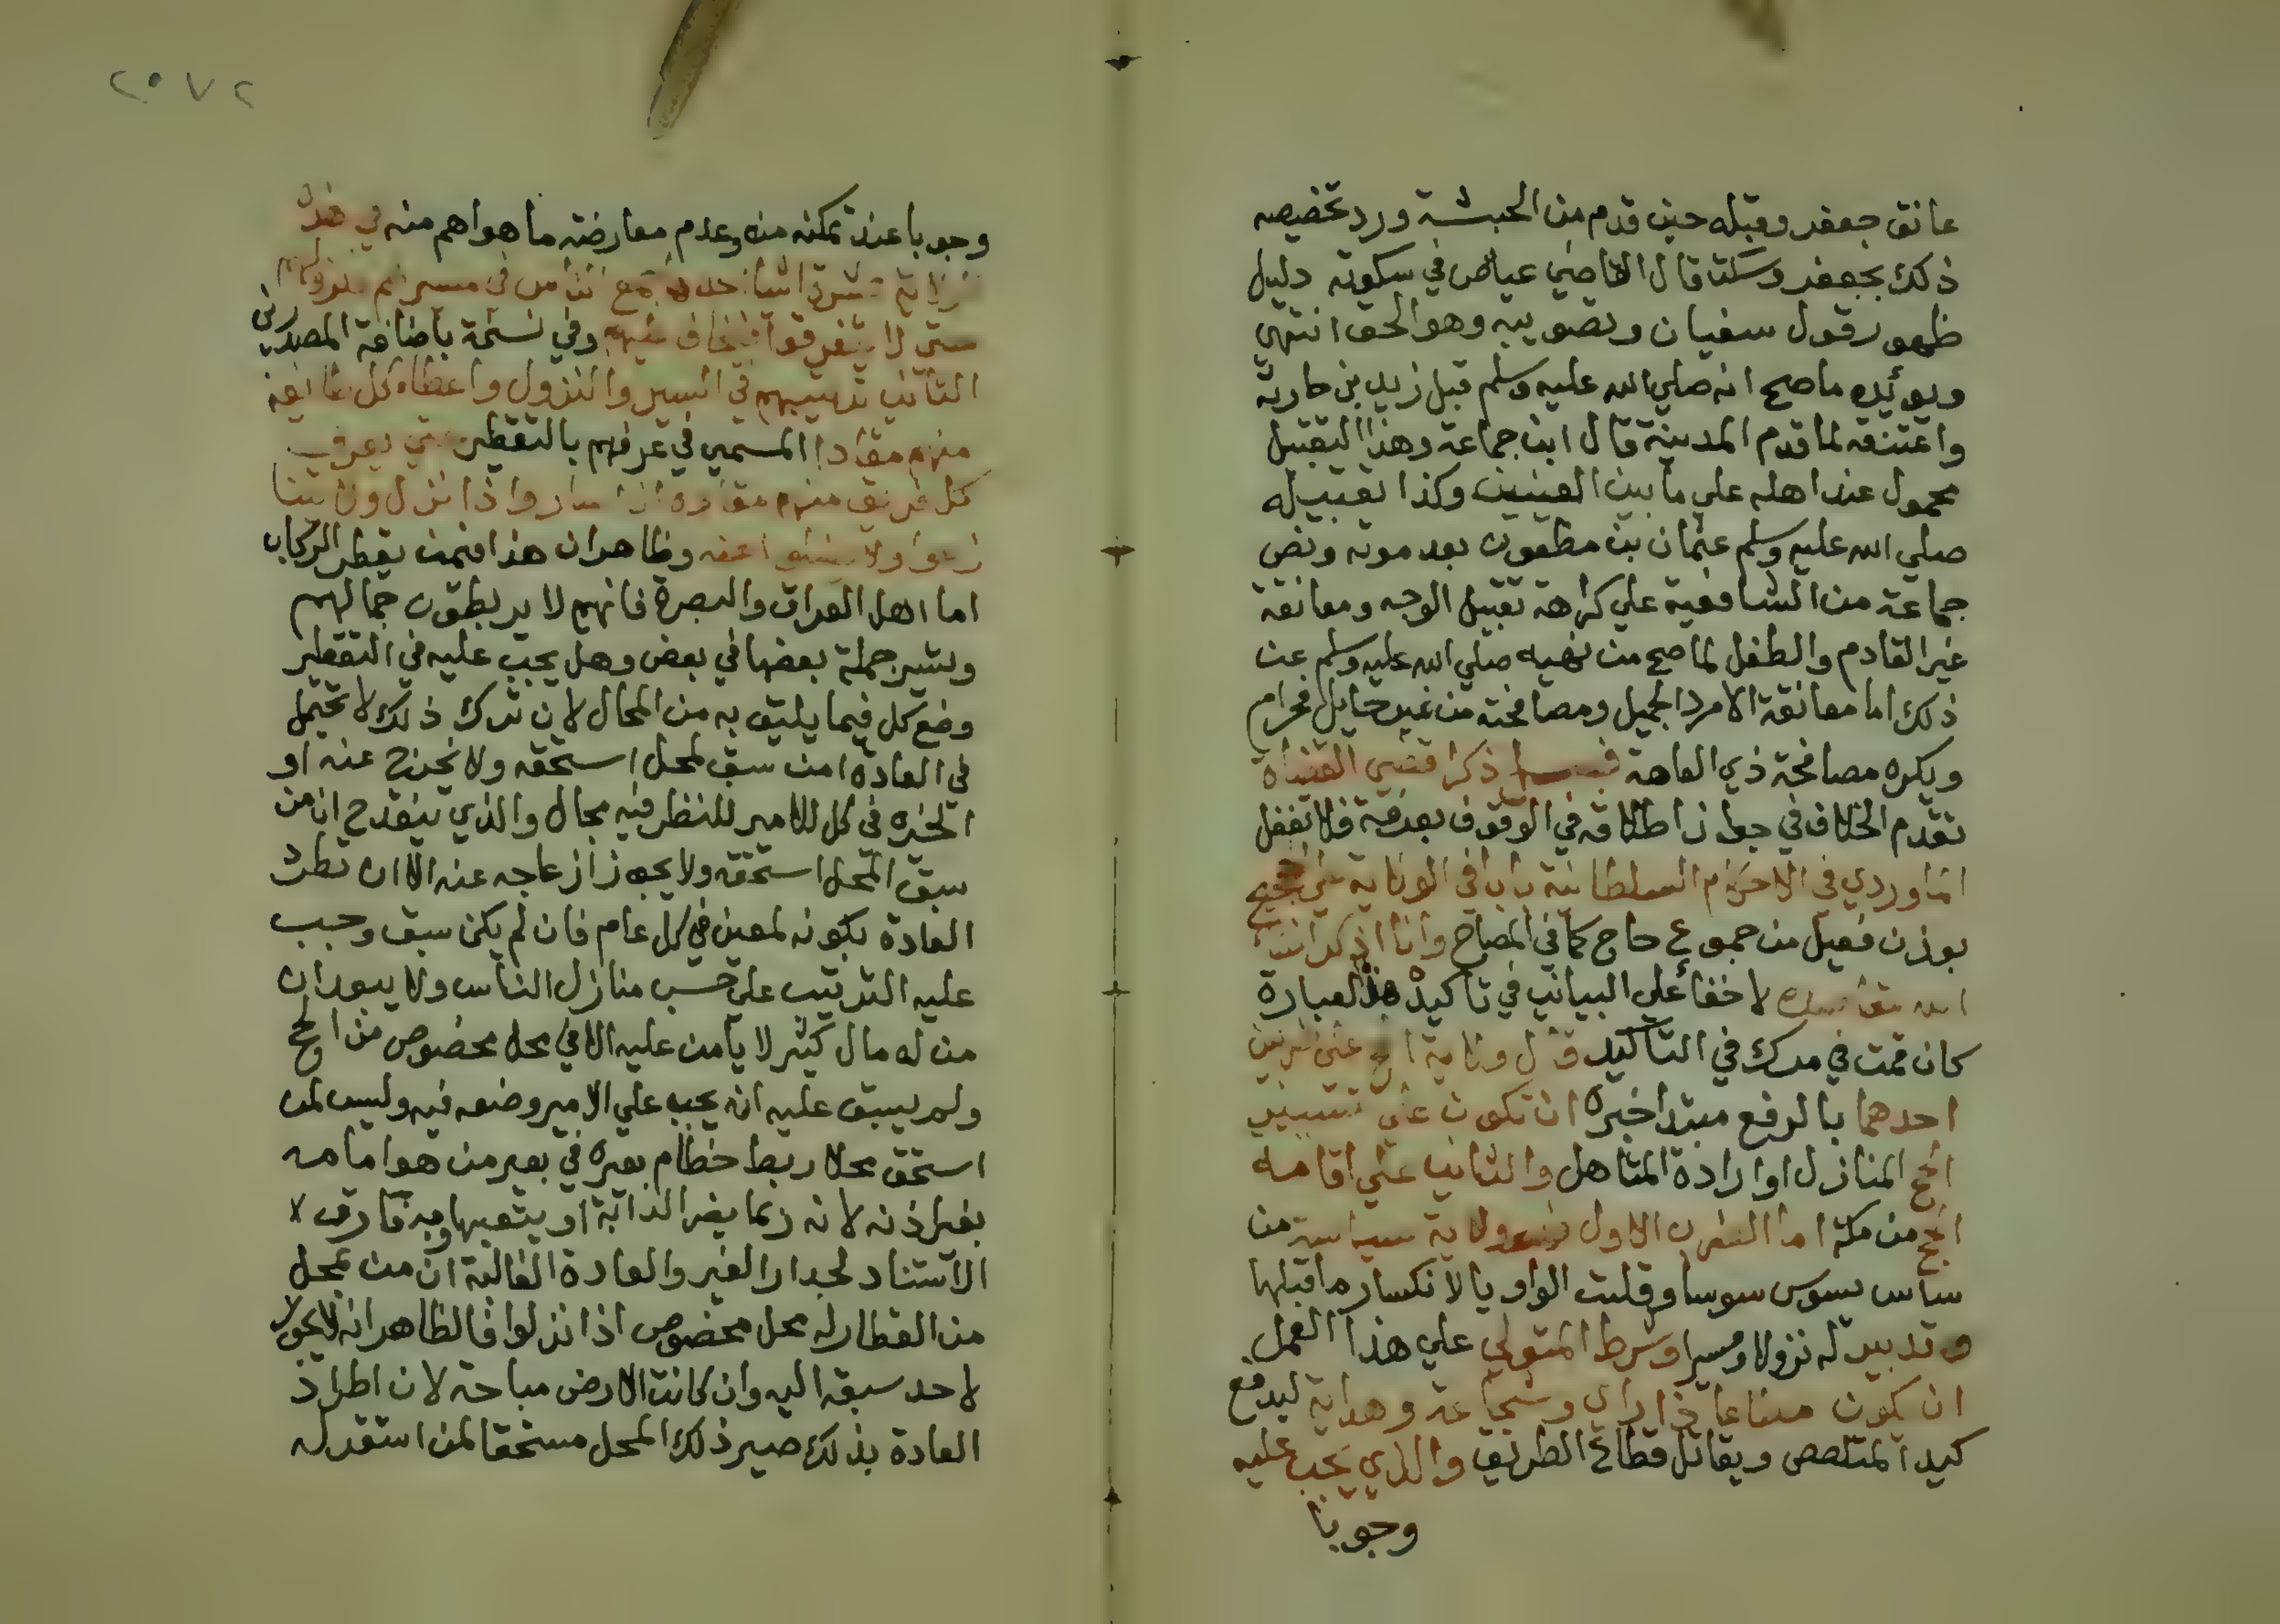 عانق جعفر وقبله حين قدم من الحبشة ورد تخصيصه
ذلك بجعفر وسكت قال القاضي عياض في سكوته دليل
ظهور قول سفيان وتصويبه وهو الحق انتهي
ويوئيده ما صح انه صلي الله عليه وسلم قبل زيد بن حارثة
واعتنقه لما قدم المدينة قال ابن جماعة وهذا التقبيل
محمول عند اهله علي ما بين العينين وكذا تقبيله
صلي الله عليه وسلم عثمان بن مظعون بعد موته ونص
جماعة من الشافعية علي كراهة تقبيل الوجه ومعانقة
غير القادم والطفل لما صح من نهيه صلي الله عليه وسلم عن
ذلك اما معانقة الامرد الجميل ومصافحته من غير حايل فحرام
ويكره مصافحة ذي العاهة ذكر اقضي القضاة
تقدم الخلاف في جواز اطلاقه في الوقوف بعرفة فلا تغفل
الماوردي في الاحكام السلطانية بابا في الولاية علي الحجيج
بوزن فعيل من جموع حاج كما في المصباح وانا اذكر ان شا
الله مقاصده لا خفا علي البيانيين في تاكيد هذه العبارة
كان قمت في مدرك في التاكيد قال ولاية الحج علي ضربين
احدهما بالرفع مبتدا خبره ان تكون علي تسيير
الحج المنازل او ارادة المتاهل والثاني علي اقامه
الحج من مكة اما الضرب الاول فهو ولاية سياسة من
ساس يسوس سوسا وقلبت الواو يا لانكسار ما قبلها
وتدبير له نزولا ومسيرا وشرط المتولي علي هذا العمل
ان يكون مطاعا ذا راي وشجاعة وهداية ليدفع
كيد المتلصص ويقاتل قطاع الطريق والذي يجب عليه
وجوبا
٢٥٧٢
وجوبا عند تمكنه منه وعدم معارضة ما هو اهم منه في هذه
الولاية عشرة اشيا احدها جمع الناس في مسيرهم ونزولهم
حتي لا يتفرقوا فيخاف عليهم وفي نسخة باضافة المصدر
الثاني ترتيبهم في السير والنزول واعطاء كل طايفة
منهم مقادا المسمي في عرفهم بالتقطير حتي يعرف
كل فريق منهم مقاده اذا سار واذا نزل ولا يتنا
زعوا ولا يضلوا عنه وظاهر ان هذا فيمن يقطر الركاب
اما اهل العراق والبصرة فانهم لا يربطون جمالهم
وتسير جملة بعضها في بعض وهل يجب عليه في التقطير
وضع كل فيما يليق به من المحال لان ترك ذلك لا تحتمل
في العادة او من سبق لمحل استحقه ولا يخرج عنه او
الخيره في كل للامير للنظر فيه مجال والذي ينقدح ان من
سبق المحل استحقه ولا يجوز ازعاجه عنه الا ان تطرد
العادة بكونه لمعين في كل عام فان لم يكن سبق وجب
عليه الترتيب علي حسب منازل الناس ولا يبعد ان
من له مال كثير لا يامن عليه الا في محل مخصوص من الحج
ولم يسبق عليه انه يجب علي الامير وضعه فيه وليس لمن
استحق محلا ربط خطام بعيره في بعير من هو امامه
بغير اذنه لانه ربما يضر الدابة او يتعبها وبه فارق
الاستناد لجدار الغير والعادة الغالبة ان من بمحل
من القطار له محل مخصوص اذا نزلوا فالظاهر انه لا يجوز
لاحد سبقه اليه وان كانت الارض مباحة لان اطراد
العادة بذلك صير ذلك المحل مستحقا لمن استقر له